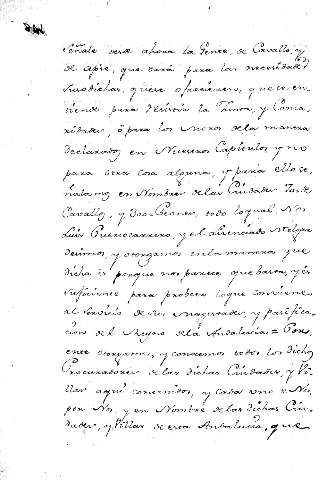 señale desde ahora la Gente, de Cavallo, y
de apie, que será para las necesidades
susodichas, quese ofrecieren, que se en
tiende para resistir la Tierra, y Coma
rcades, ó para los Moros de la manera
declarados en Nuestros Capitulos y no
para otra cosa alguna, y para ello se
ñalamos en Nombre de las Ciudades
Cavallo, y Peones, todo lo qual Nos
Luis Puertocarrero, y el Licenciado
decimos, y otorgamos en la manera que
dicha es porque nos parece que basta, y es
suficiente para proveer lo que conviene
al servicio de sus Magestades, y pacifica
cion del Reyno de la Andalucia = 
ente otorgamos, y conocemos todos los dichos
Procuradores de las dichas Ciudades, y Vi
llas aqui contenidos, y cada uno de Nos
por Nos, y en Nombre de las dichas Ciu
dades, y Villas de esta Andalucia, que